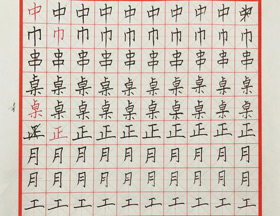 中中中中中中中中中
巾巾巾巾巾巾巾巾巾巾
串串串串串串串串串串
桌桌桌桌桌桌桌桌桌桌
桌桌桌桌桌桌桌桌桌桌
正正正正正正正正正
月月月月月月月月月月
月月月月月月月月月月
工工工工工工工工工工